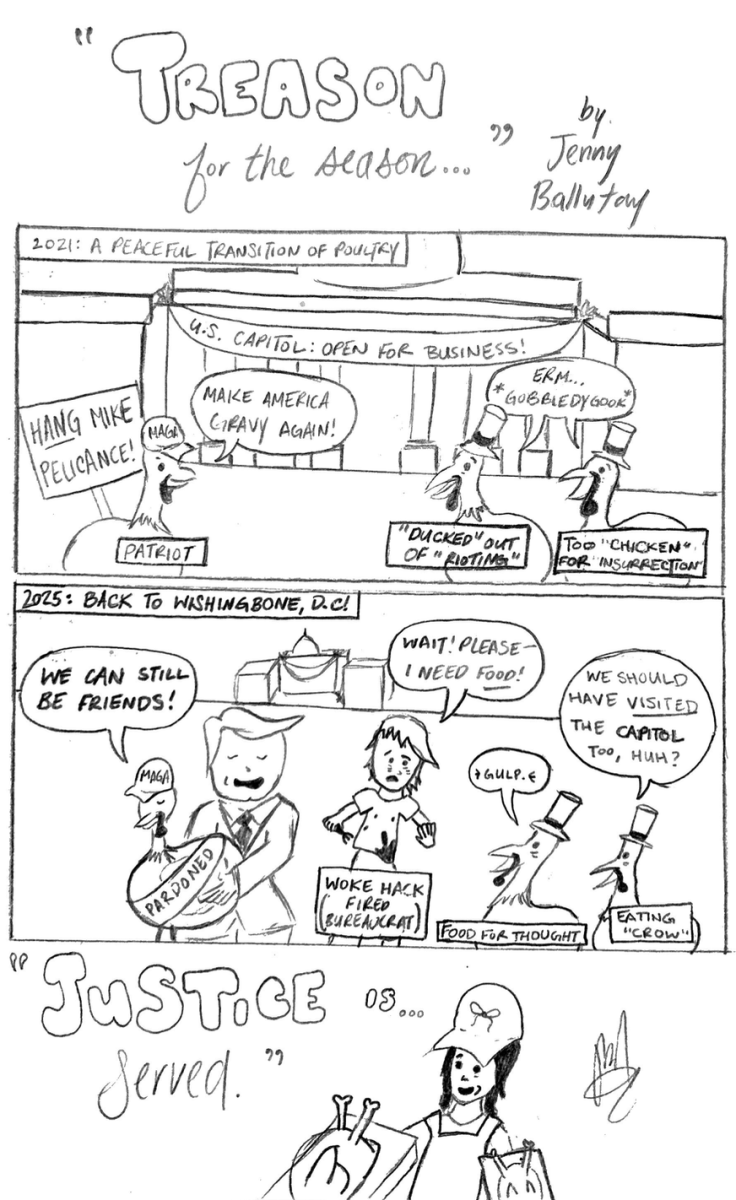 "TREASON
for the season..."
by.
Jenny
Ballutay
2021: A PEACEFUL TRANSITION OF POULTRY
U.S. CAPITOL: OPEN FOR BUSINESS!
HANG MIKE
PELICANCE!
MAGA
MAKE AMERICA
GRAVY AGAIN!
ERM...
*GOBBLEDYGOOK*
PATRIOT
"DUCKED" OUT
OF "RIOTING"
TOO "CHICKEN"
FOR "INSURRECTION"
2025: BACK TO WISHINGBONE, D.C!
WE CAN STILL
BE FRIENDS!
WAIT! PLEASE–
I NEED FOOD!
WE SHOULD
HAVE VISITED
THE CAPITOL
TOO, HUH?
MAGA
GULP.
PARDONED
WOKE HACK
(FIRED
BUREAUCRAT)
FOOD FOR THOUGHT
EATING
"CROW"
"JUSTICE IS...
served."